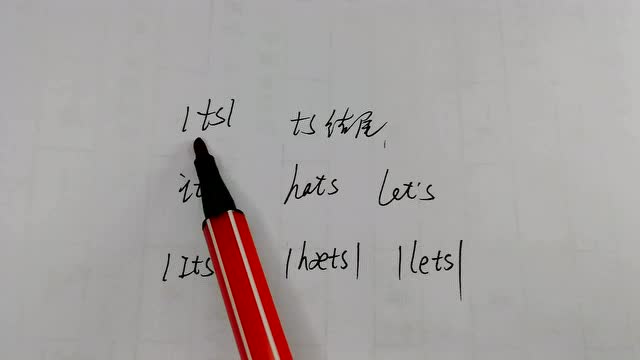 /ts/ ts结尾
hats let's
/ɪts /hæts/ /lets/